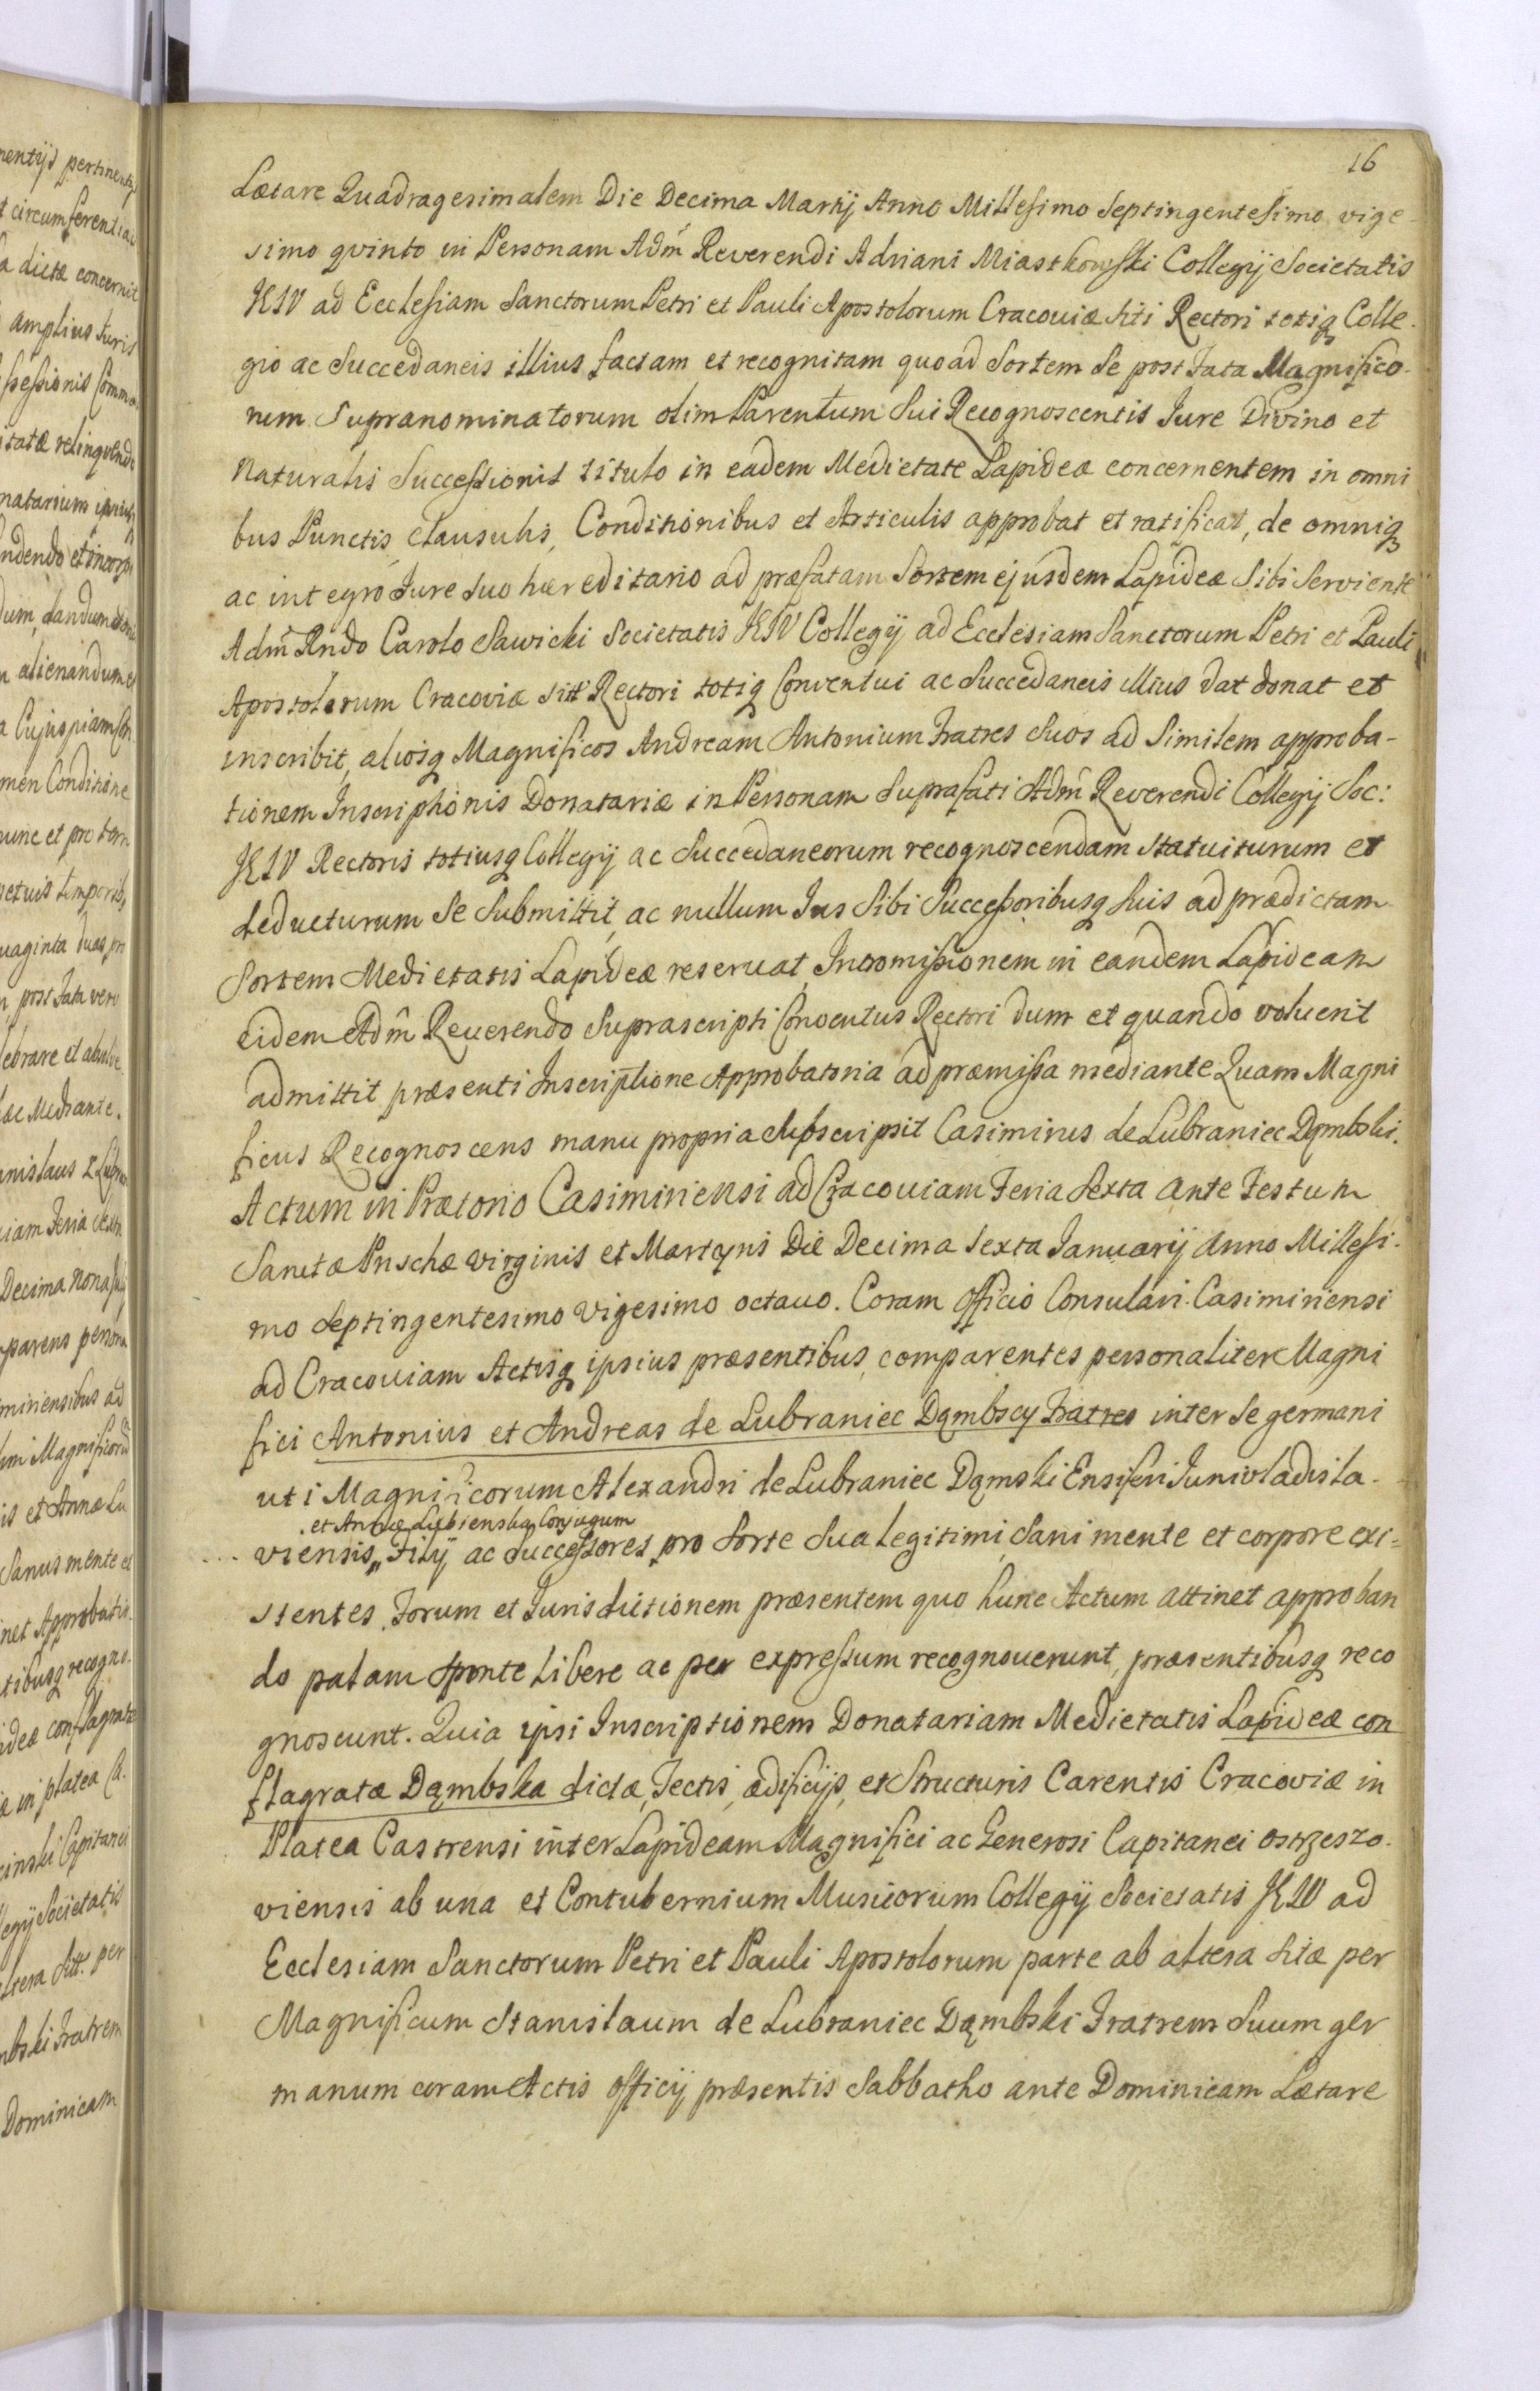 16
Lætare Quadragesimalem Die Decima Martij Anno Millesimo Septingentesimo vige
simo qvinto in Personam Adm̃ Reverendi Adriani Miastkowski Collegij Societatis
JESV ad Ecclesiam Sanctorum Petri et Pauli Apostolorum Cracoviæ Siti Rectori totiq Colle-
gio ac Succedaneis illius factam et recognitam quoad Sortem Se post Fata Magnifico-
rum Supranominatorum olim Parentum Sui Recognoscentis Jure Divino et
Naturalis Successionis titulo in eadem Medietate Lapideæ concernentem in omni
bus Punctis, Clausulis, Conditionibus et Articulis approbat et ratificat, de omniq
ac integro Jure Suo hæreditario ad præfatam Sortem ejusdem Lapideæ Sibi Serviente
Adm̃ Rndo Carolo Sawicki Societatis JESV Collegij ad Ecclesiam Sanctorum Petri et Pauli
Apostolorum Cracoviæ sitt Rectori totiq Conventui ac Succedaneis illius dat donat et
inscribit, aliosq Magnificos Andream Antonium Fratres Suos ad Similem approba-
tionem Inscriptionis Donatariæ in Personam Suprafati Adm̃ Reverendi Collegij Soc:
JESV Rectoris totiusq Collegij ac Succedaneorum recognoscendam Statuiturum et
deducturum Se Submittit, ac nullum Jus Sibi Successoribusq Suis ad prædictam
Sortem Medietatis Lapideæ reservat, Intromissionem in eandem Lapideam
eidem Adm̃ Reverendo Suprascripti Conventus Rectori dum et quando voluerit
admittit præsenti Inscriptione Approbatoria ad præmissa mediante. Quam Magni
ficus Recognoscens manu propria Subscripsit Casimirus de Lubraniec Dąmbski.
Actum in Prætorio Casimiriensi ad Cracoviam Feria Sexta ante Festum
Sanctæ Prischæ virginis et Martyris Die Decima Sexta Januarij Anno Millesi-
mo Septingentesimo vigesimo octavo. Coram Officio Consulari Casimiriensi
ad Cracoviam Actisq ipsius præsentibus comparentes personaliter Magni
fici Antonius et Andreas de Lubraniec Dąmbscy Fratres inter Se germani
uti Magnificorum Alexandri de Lubraniec Dąmski Ensiferi Junivladisla-
et Annæ Lubienska Conjugum
viensis, Filij ac Successores pro Sorte Sua legitimi, Sani mente et corpore exi-
stentes, Forum et Jurisdictionem præsentem quo hunc Actum attinet approban
do palam Sponte Libere ac per expressum recognoverunt, præsentibusq reco
gnoscunt. Quia ipsi Inscriptionem Donatariam Medietatis Lapideæ con
flagratæ Dąmbska dictæ, Tectis, ædificijs, et Structuris Carentis Cracoviæ in
Platea Castrensi inter Lapideam Magnifici ac Generosi Capitanei Ostrzeszo-
viensis ab una et Contubernium Musicorum Collegij Societatis JESV ad
Ecclesiam Sanctorum Petri et Pauli Apostolorum parte ab altera Sitæ per
Magnificum Stanislaum de Lubraniec Dąmbski Fratrem Suum ger
manum coram Actis Officij præsentis Sabbatho ante Dominicam Lætare